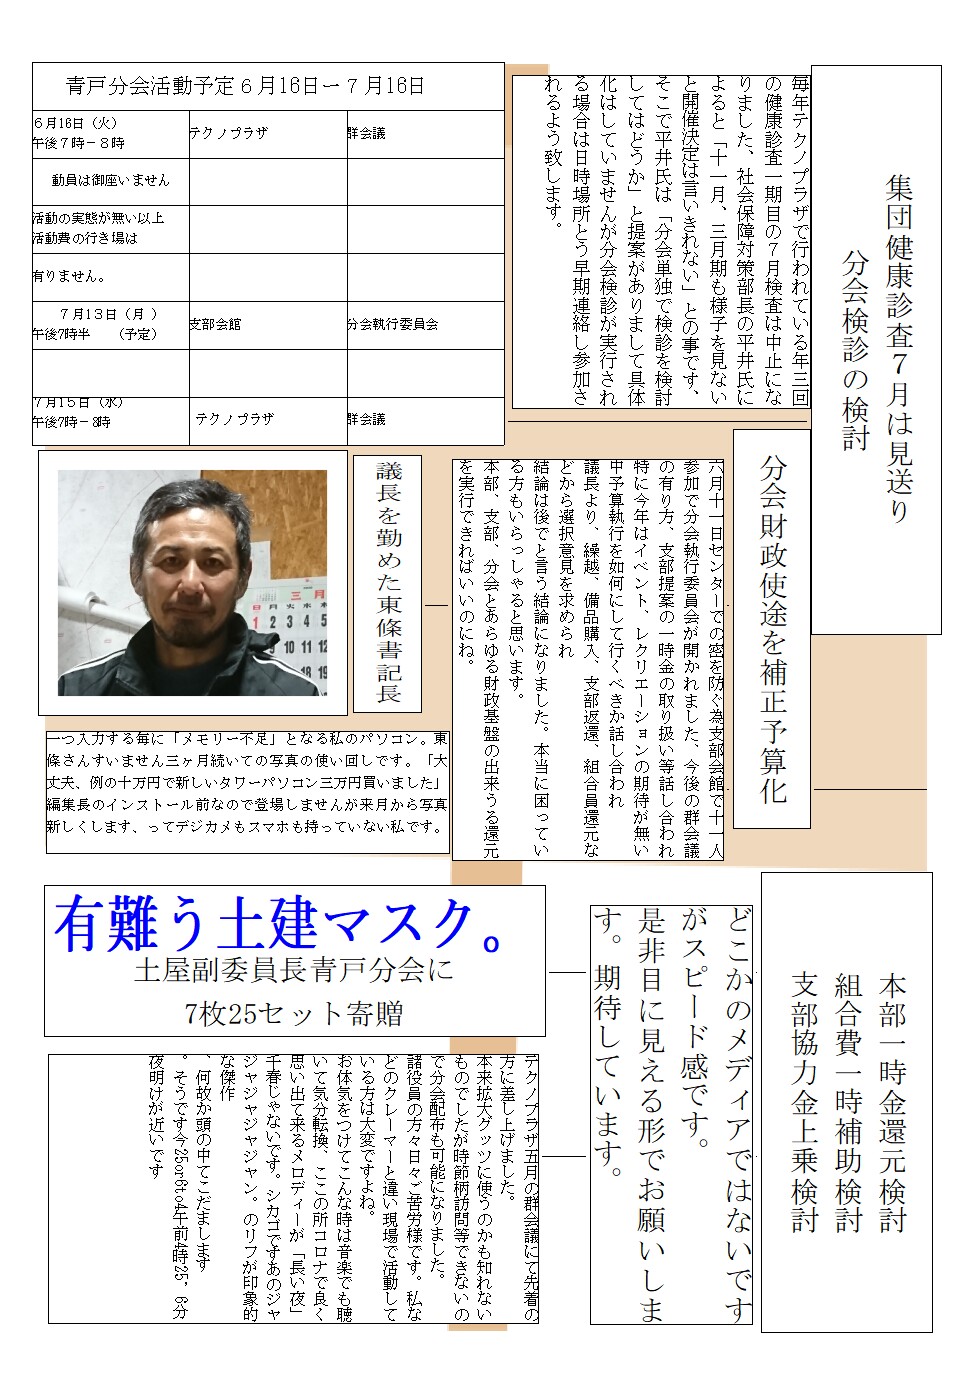 集団健康診査７月は見送り
分会検診の検討
毎年テクノプラザで行われている年三回
の健康診査一期目の７月検査は中止にな
りました、社会保障対策部長の平井氏に
よると「十一月、三月期も様子を見ない
と開催決定は言いきれない」との事です、
そこで平井氏は「分会単独で検診を検討
してはどうか」と提案がありまして具体
化はしていませんが分会検診が実行され
る場合は日時場所とう早期連絡し参加さ
れるよう致します。
青戸分会活動予定６月16日ー７月16日
６月16日（火）
午後７時－８時
テクノプラザ
群会議
動員は御座いません
活動の実態が無い以上
活動費の行き場は
有りません。
７月１３日（月 ）
午後7時半　（予定）
支部会館
分会執行委員会
７月１５日（水）
午後7時－8時
テクノプラザ
群会議
分会財政使途を補正予算化
六月十一日センターでの密を防ぐ為支部会館で十一人
参加で分会執行委員会が開かれました、今後の群会議
の有り方、支部提案の一時金の取り扱い等話し合われ
特に今年はイベント、レクリエーションの期待が無い
中予算執行を如何にして行くべきか話し合われ
議長より、繰越、備品購入、支部返還、組合員還元な
どから選択意見を求められ
結論は後でと言う結論になりました。本当に困ってい
る方もいらっしゃると思います。
本部、支部、分会とあらゆる財政基盤の出来うる還元
を実行できればいいのにね。
議長を勤めた東條書記長
一つ入力する毎に「メモリー不足」となる私のパソコン。東
條さんすいません三ヶ月続いての写真の使い回しです。「大
丈夫、例の十万円で新しいタワーパソコン三万円買いました」
編集長のインストール前なので登場しませんが来月から写真
新しくします、ってデジカメもスマホも持っていない私です。
本部一時金還元検討
組合費一時補助検討
支部協力金上乗検討
どこかのメディアではないです
がスピード感です。
是非目に見える形でお願いしま
す。期待しています。
有難う土建マスク。
土屋副委員長青戸分会に
7枚25セット寄贈
テクノプラザ五月の群会議にて先着の
方に差し上げました。
本来拡大グッツに使うのかも知れない
ものでしたが時節柄訪問等できないの
で分会配布も可能になりました。
諸役員の方々日々ご苦労様です。私な
どのクレーマーと違い現場で活動して
いる方は大変ですよね。
お体気をつけてこんな時は音楽でも聴
いて気分転換、ここの所コロナで良く
思い出て来るメロディーが「長い夜」
千春じゃないです。シカゴですあのジャ
ジャジャジャジャン。のリフが印象的
な傑作
、何故か頭の中でこだまします
。そうです今25or6to4午前4時25，6分
夜明けが近いです